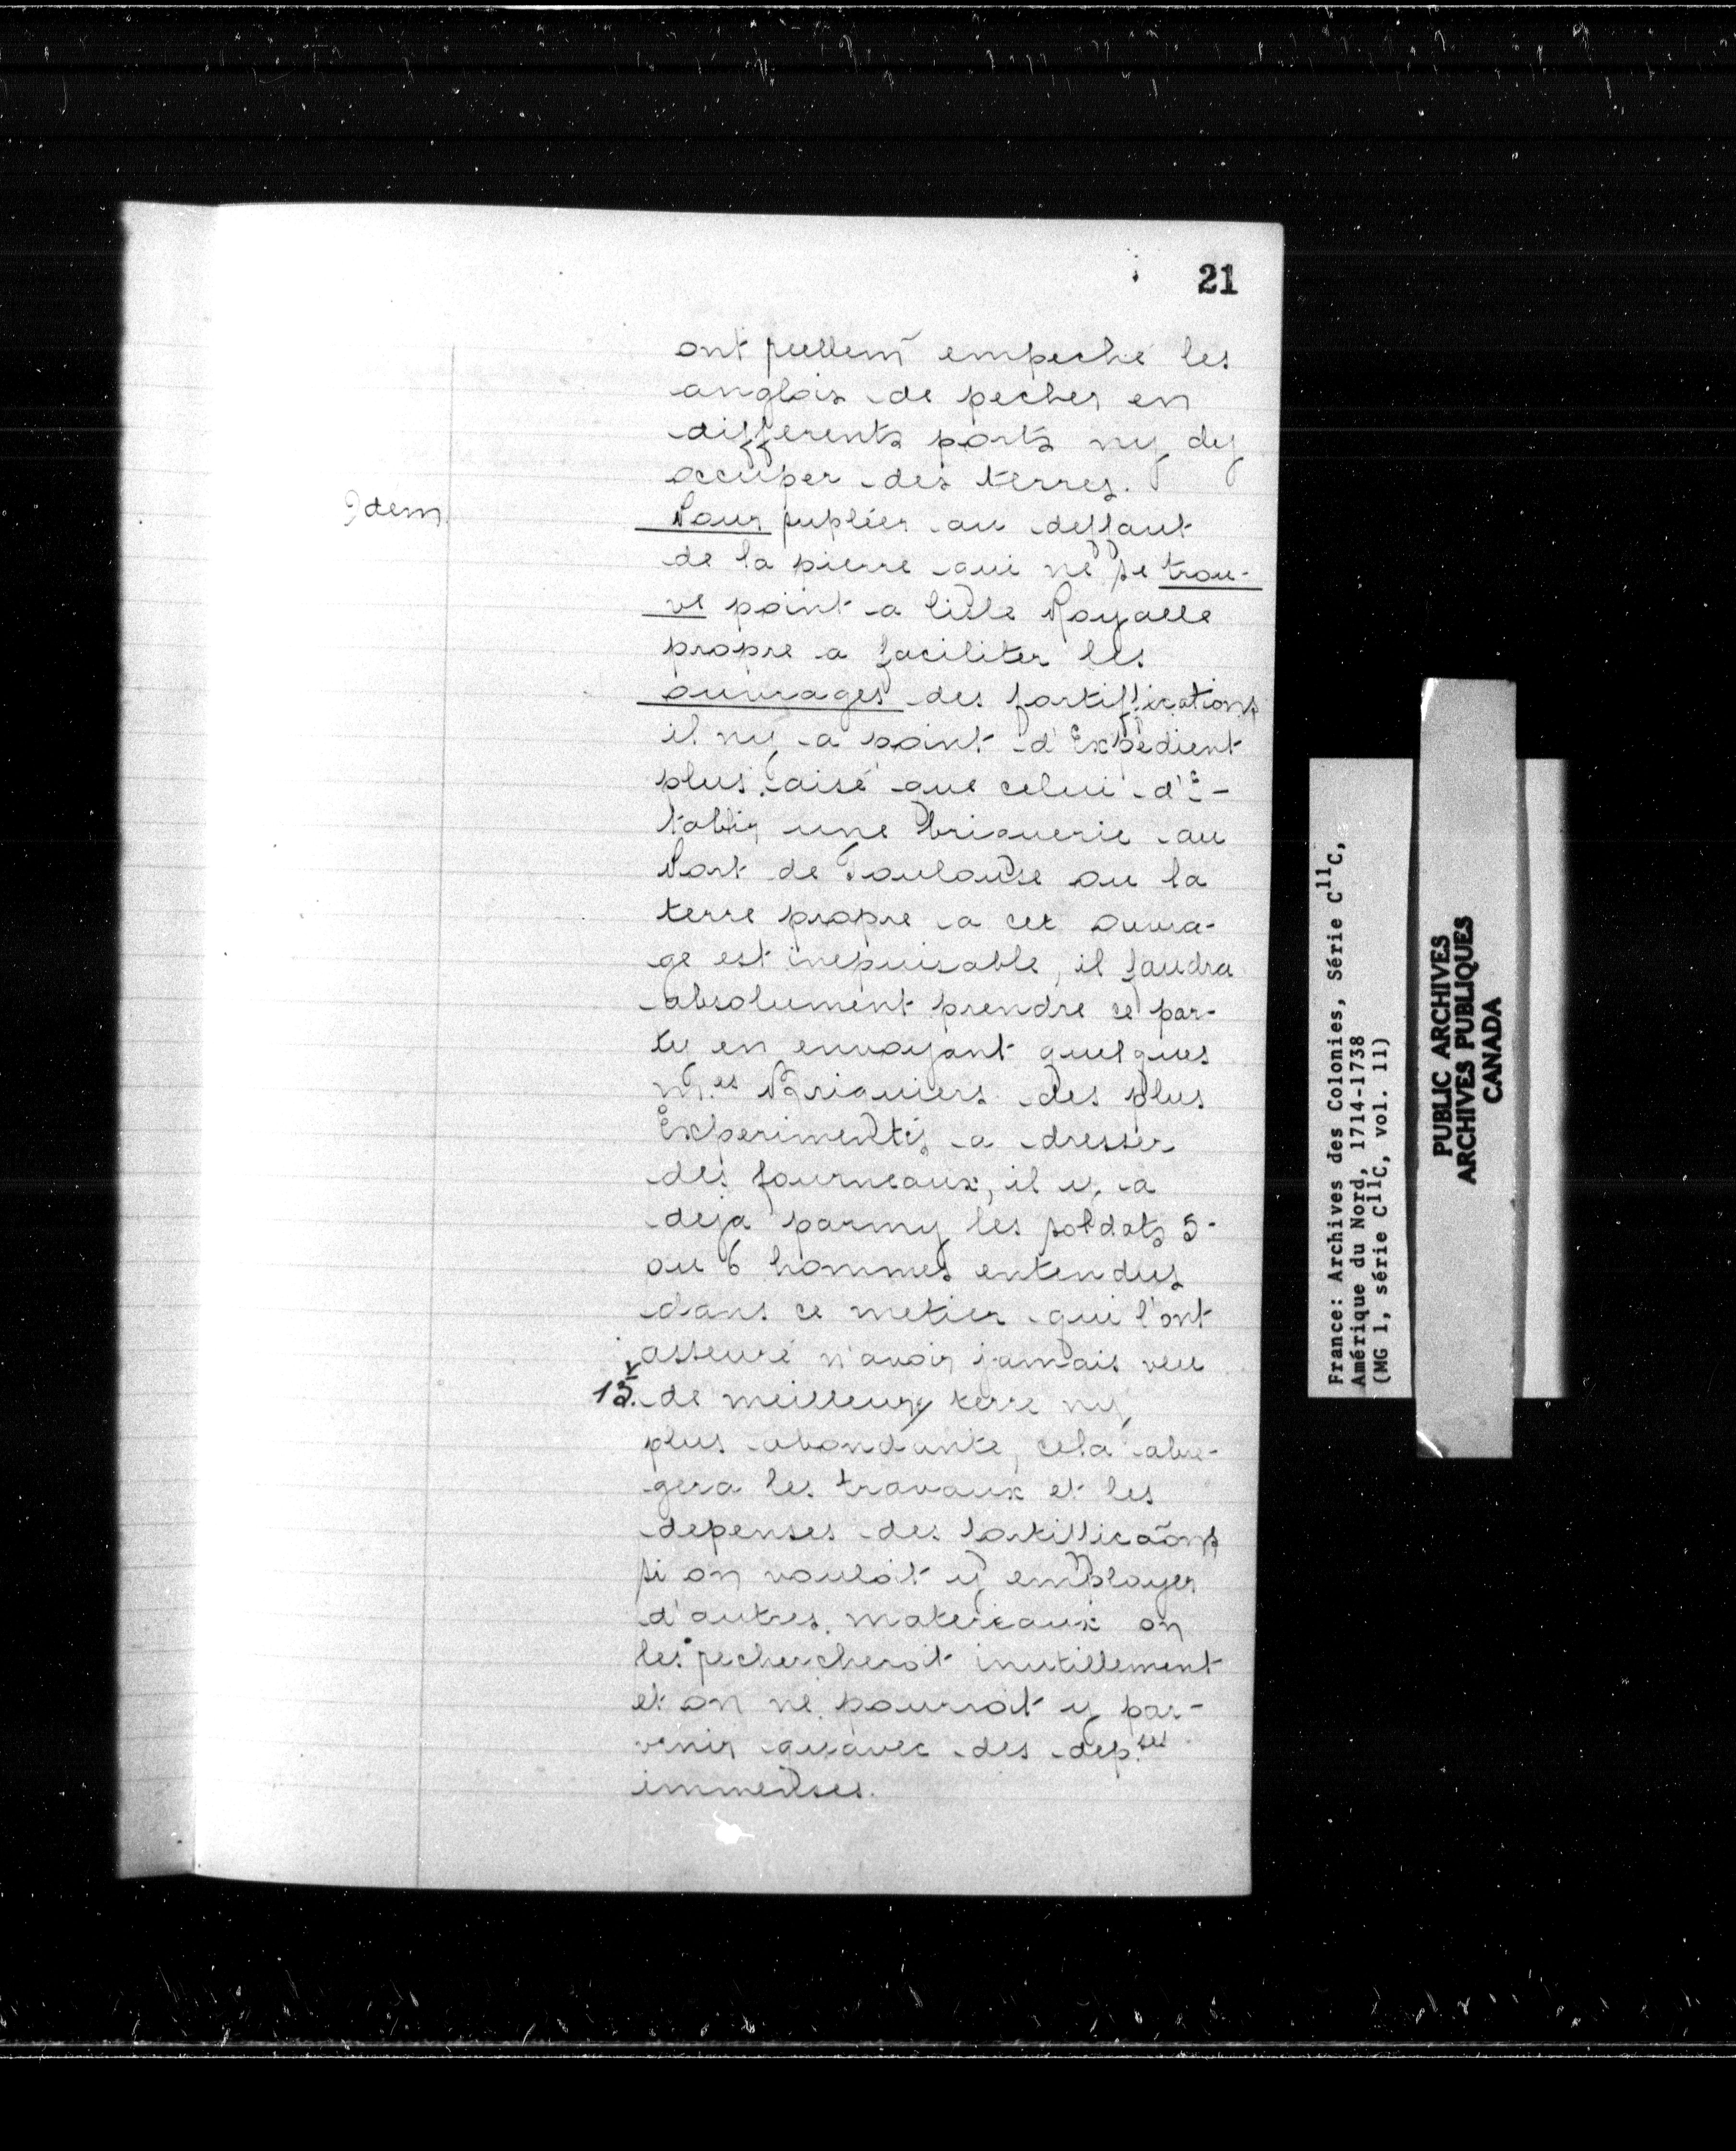 21
ont seullem̃ empeché les
anglois de pecher en
differents ports ny dy
occuper des terres.
Idem.
Pour supléer au deffaut
de la pierre qui ne se trou-
ve point a lisle Royalle
propre a faciliter les
ouvrages des fortiffications
il ny a point d'Expedient
plus aisé que celui d'E-
tablir une briquerie au
Port de Toulouse ou la
terre propre a cet ouvra-
ge est inepuisable, il faudra
absolument prendre ce par-
ty en envoyant quelques
m.es Briquiers des plus
Experimentés a dresser
des fourneaux, il y a
deja parmy les soldats 5
ou 6 hommes entendus
dans ce metier qui l'ont
asseuré n'avoir jamais veu
de meilleure terre ny
plus abondante, cela abre-
gera les travaux et les
depenses des fortifficaõns
si on vouloit y employer
d'autres materiaux on
les rechercheroit inutillement
et on ne pourroit y par-
venir qu'avec des dep.ses
immenses.
France: Archives des Colonies, Série C11C,
Amérique du Nord, 1714-1738
(MG 1, série C11C, vol. 11)
PUBLIC ARCHIVES
ARCHIVES PUBLIQUES
CANADA